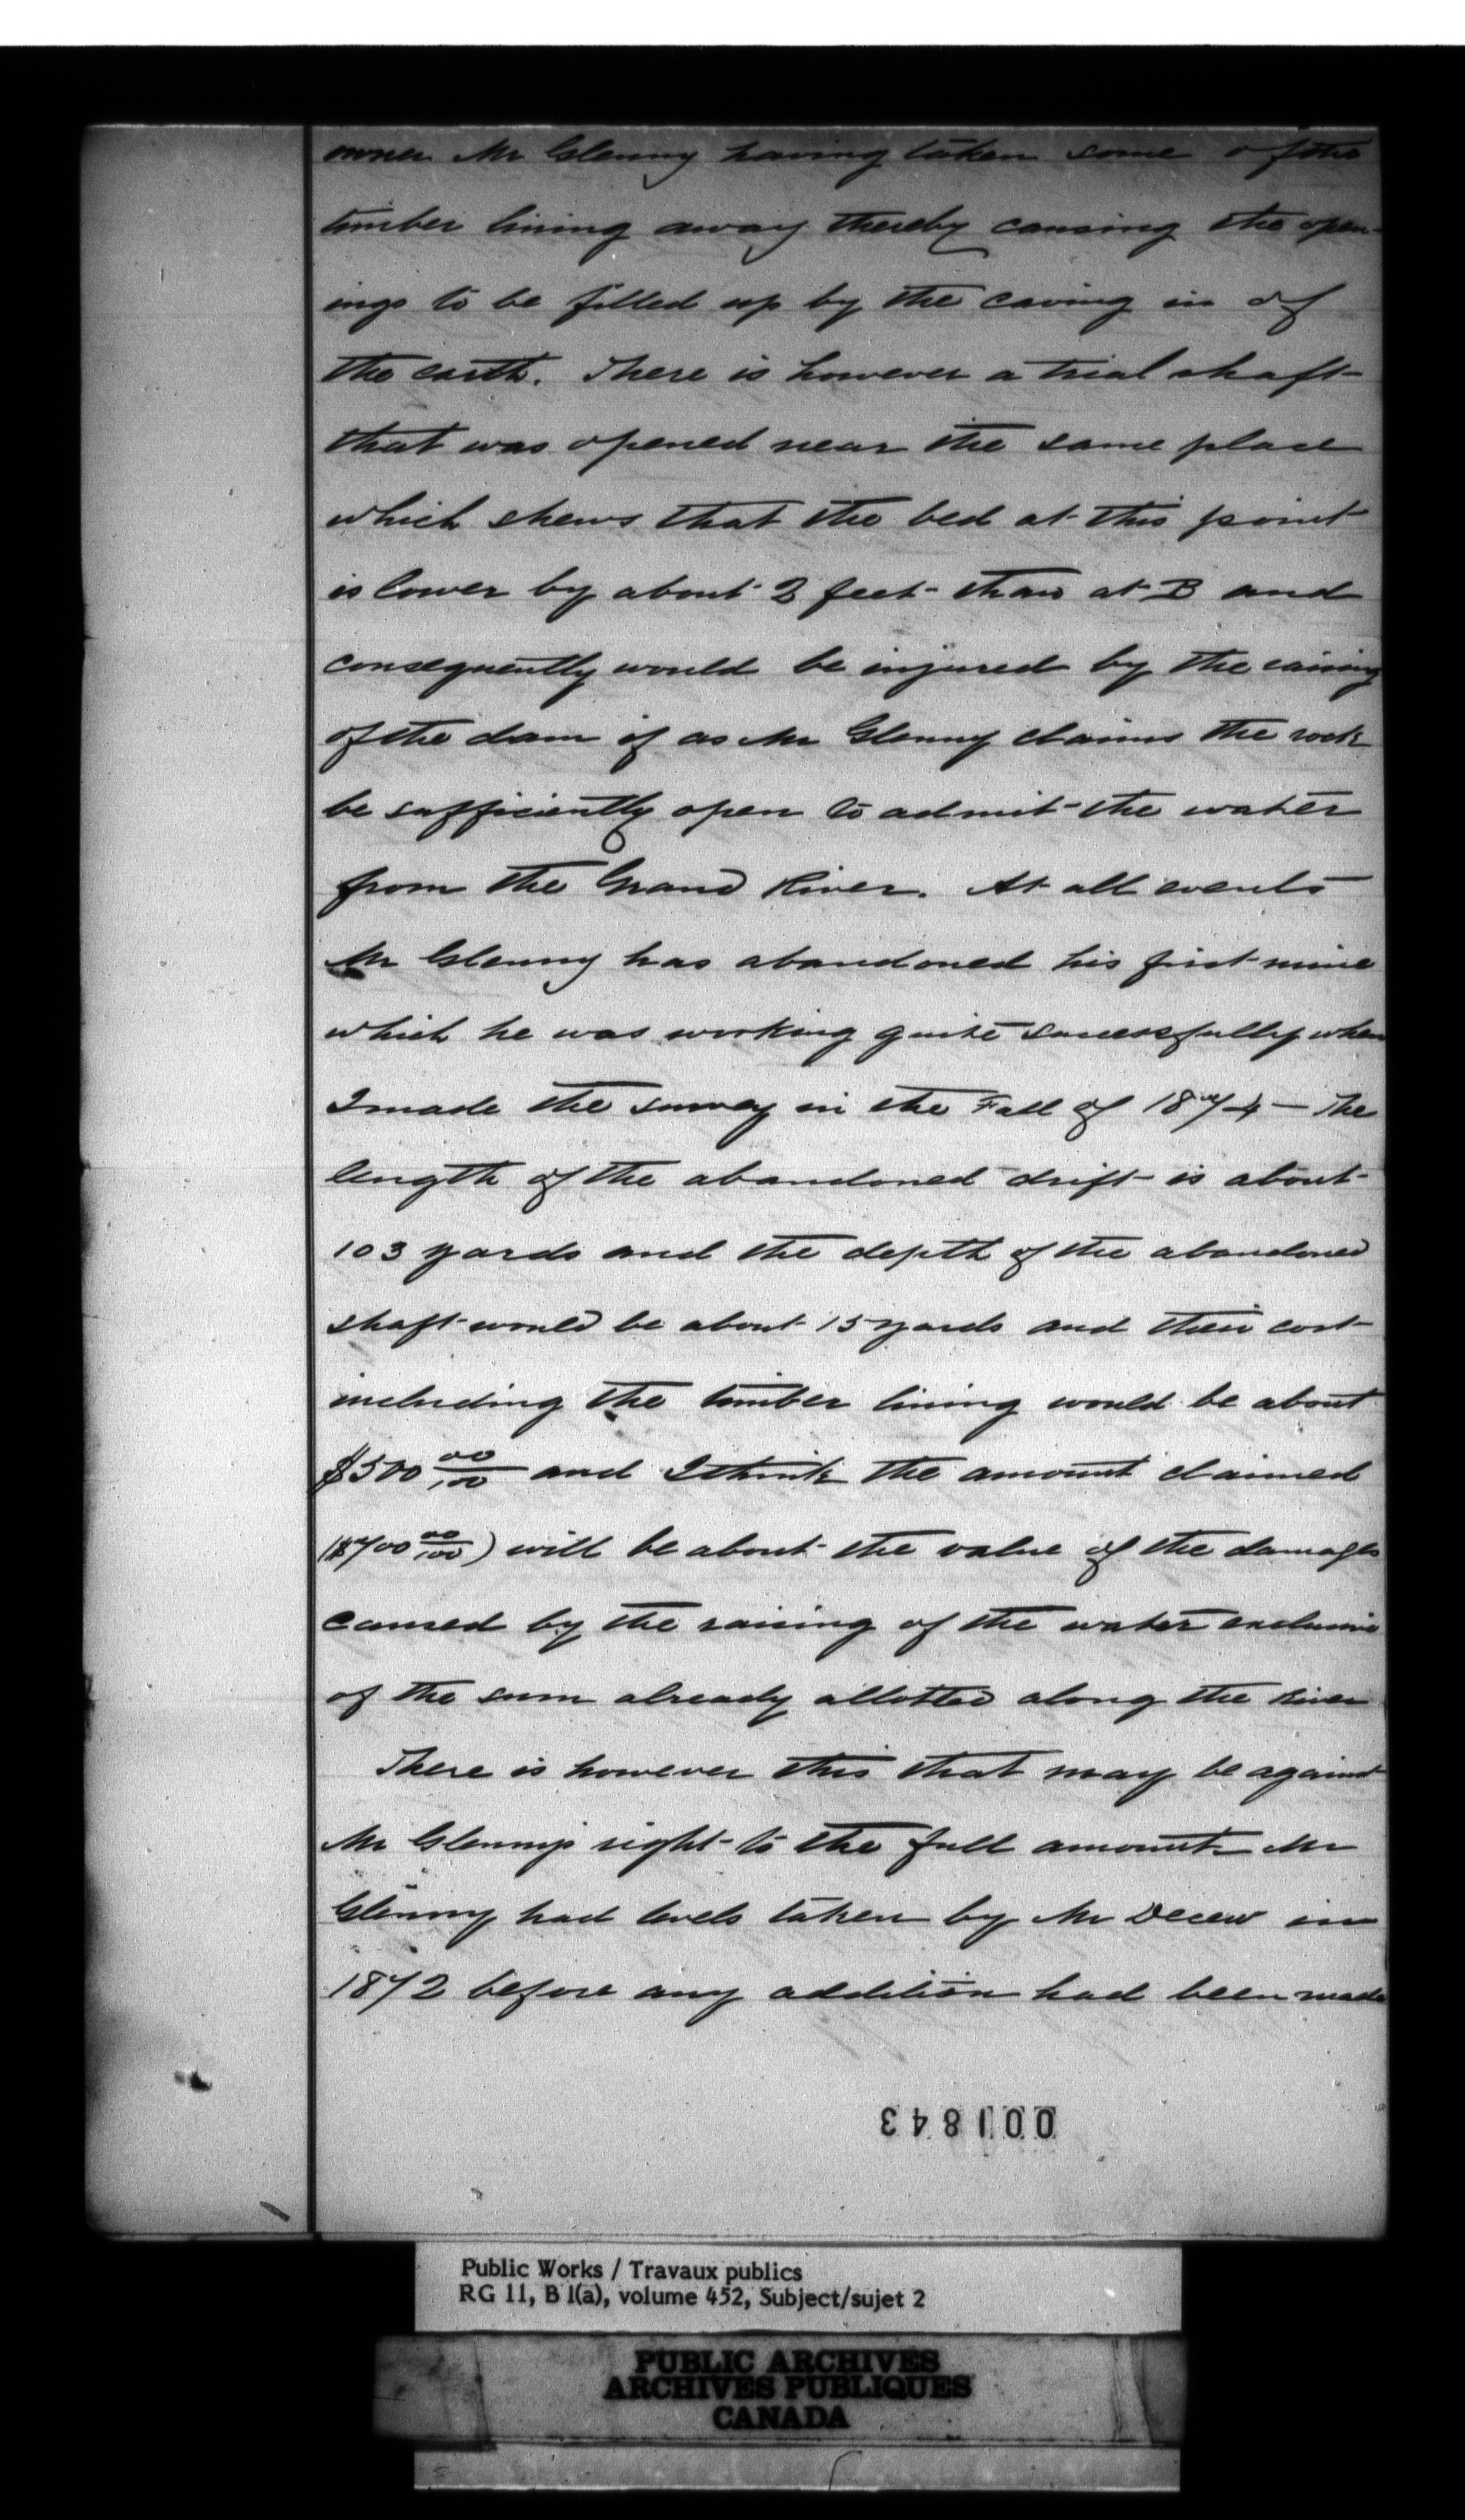 owner Mr Glenny having taken some of the
timber lining away thereby causing the open-
ings to be filled up by the caving in of
the earth. There is however a trial shaft
that was opened near the same place
which shews that the bed at this point
is lower by about 2 feet than at B and
consequently would be injured by the raising
of the dam if as Mr Glenny claims the rock
be sufficiently open to admit the water
from the Grand River. At all events
Mr Glenny has abandoned his first mine
which he was working quite sucessfully when
I made the survey in the Fall of 1874 - The
length of the abandoned drift is about
103 yards and the depth of the abandoned
shaft would be about 15 yards and their cost
including the timber lining would be about
$500 00/100 and I think the amount claimed
($700 00/100) will be about the value of the damages
caused by the raising of the water exclusive
of the sum already allotted along the River
There is however this that may be against
Mr Glenny's right to the full amount Mr
Glenny had levels taken by Mr Decew in
1872 before any addition had been made
001843
Public Works / Travaux publics
RG 11, B 1(a), volume 452, Subject/sujet 2
PUBLIC ARCHIVES
ARCHIVES PUBLIQUES
CANADA